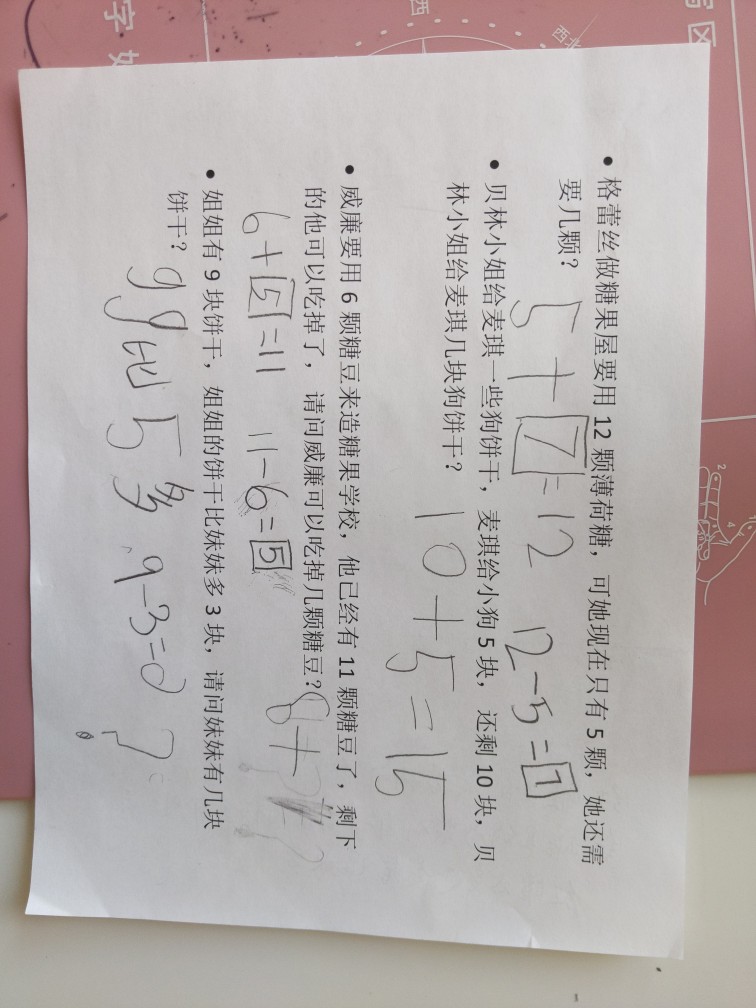 • 格蕾丝做糖果屋要用 12 颗薄荷糖，可她现在只有 5 颗，她还需
要几颗？
5+7=12 12-5=7
• 贝林小姐给麦琪一些狗饼干，麦琪给小狗 5 块，还剩 10 块，贝
林小姐给麦琪几块狗饼干？
10+5=15
• 威廉要用 6 颗糖豆来造糖果学校，他已经有 11 颗糖豆了，剩下
的他可以吃掉了，请问威廉可以吃掉几颗糖豆？
6+5=11 11-6=5 8+
• 姐姐有 9 块饼干，姐姐的饼干比妹妹多 3 块，请问妹妹有几块
饼干？
比5多 9-3=
字
西
西北
2
4